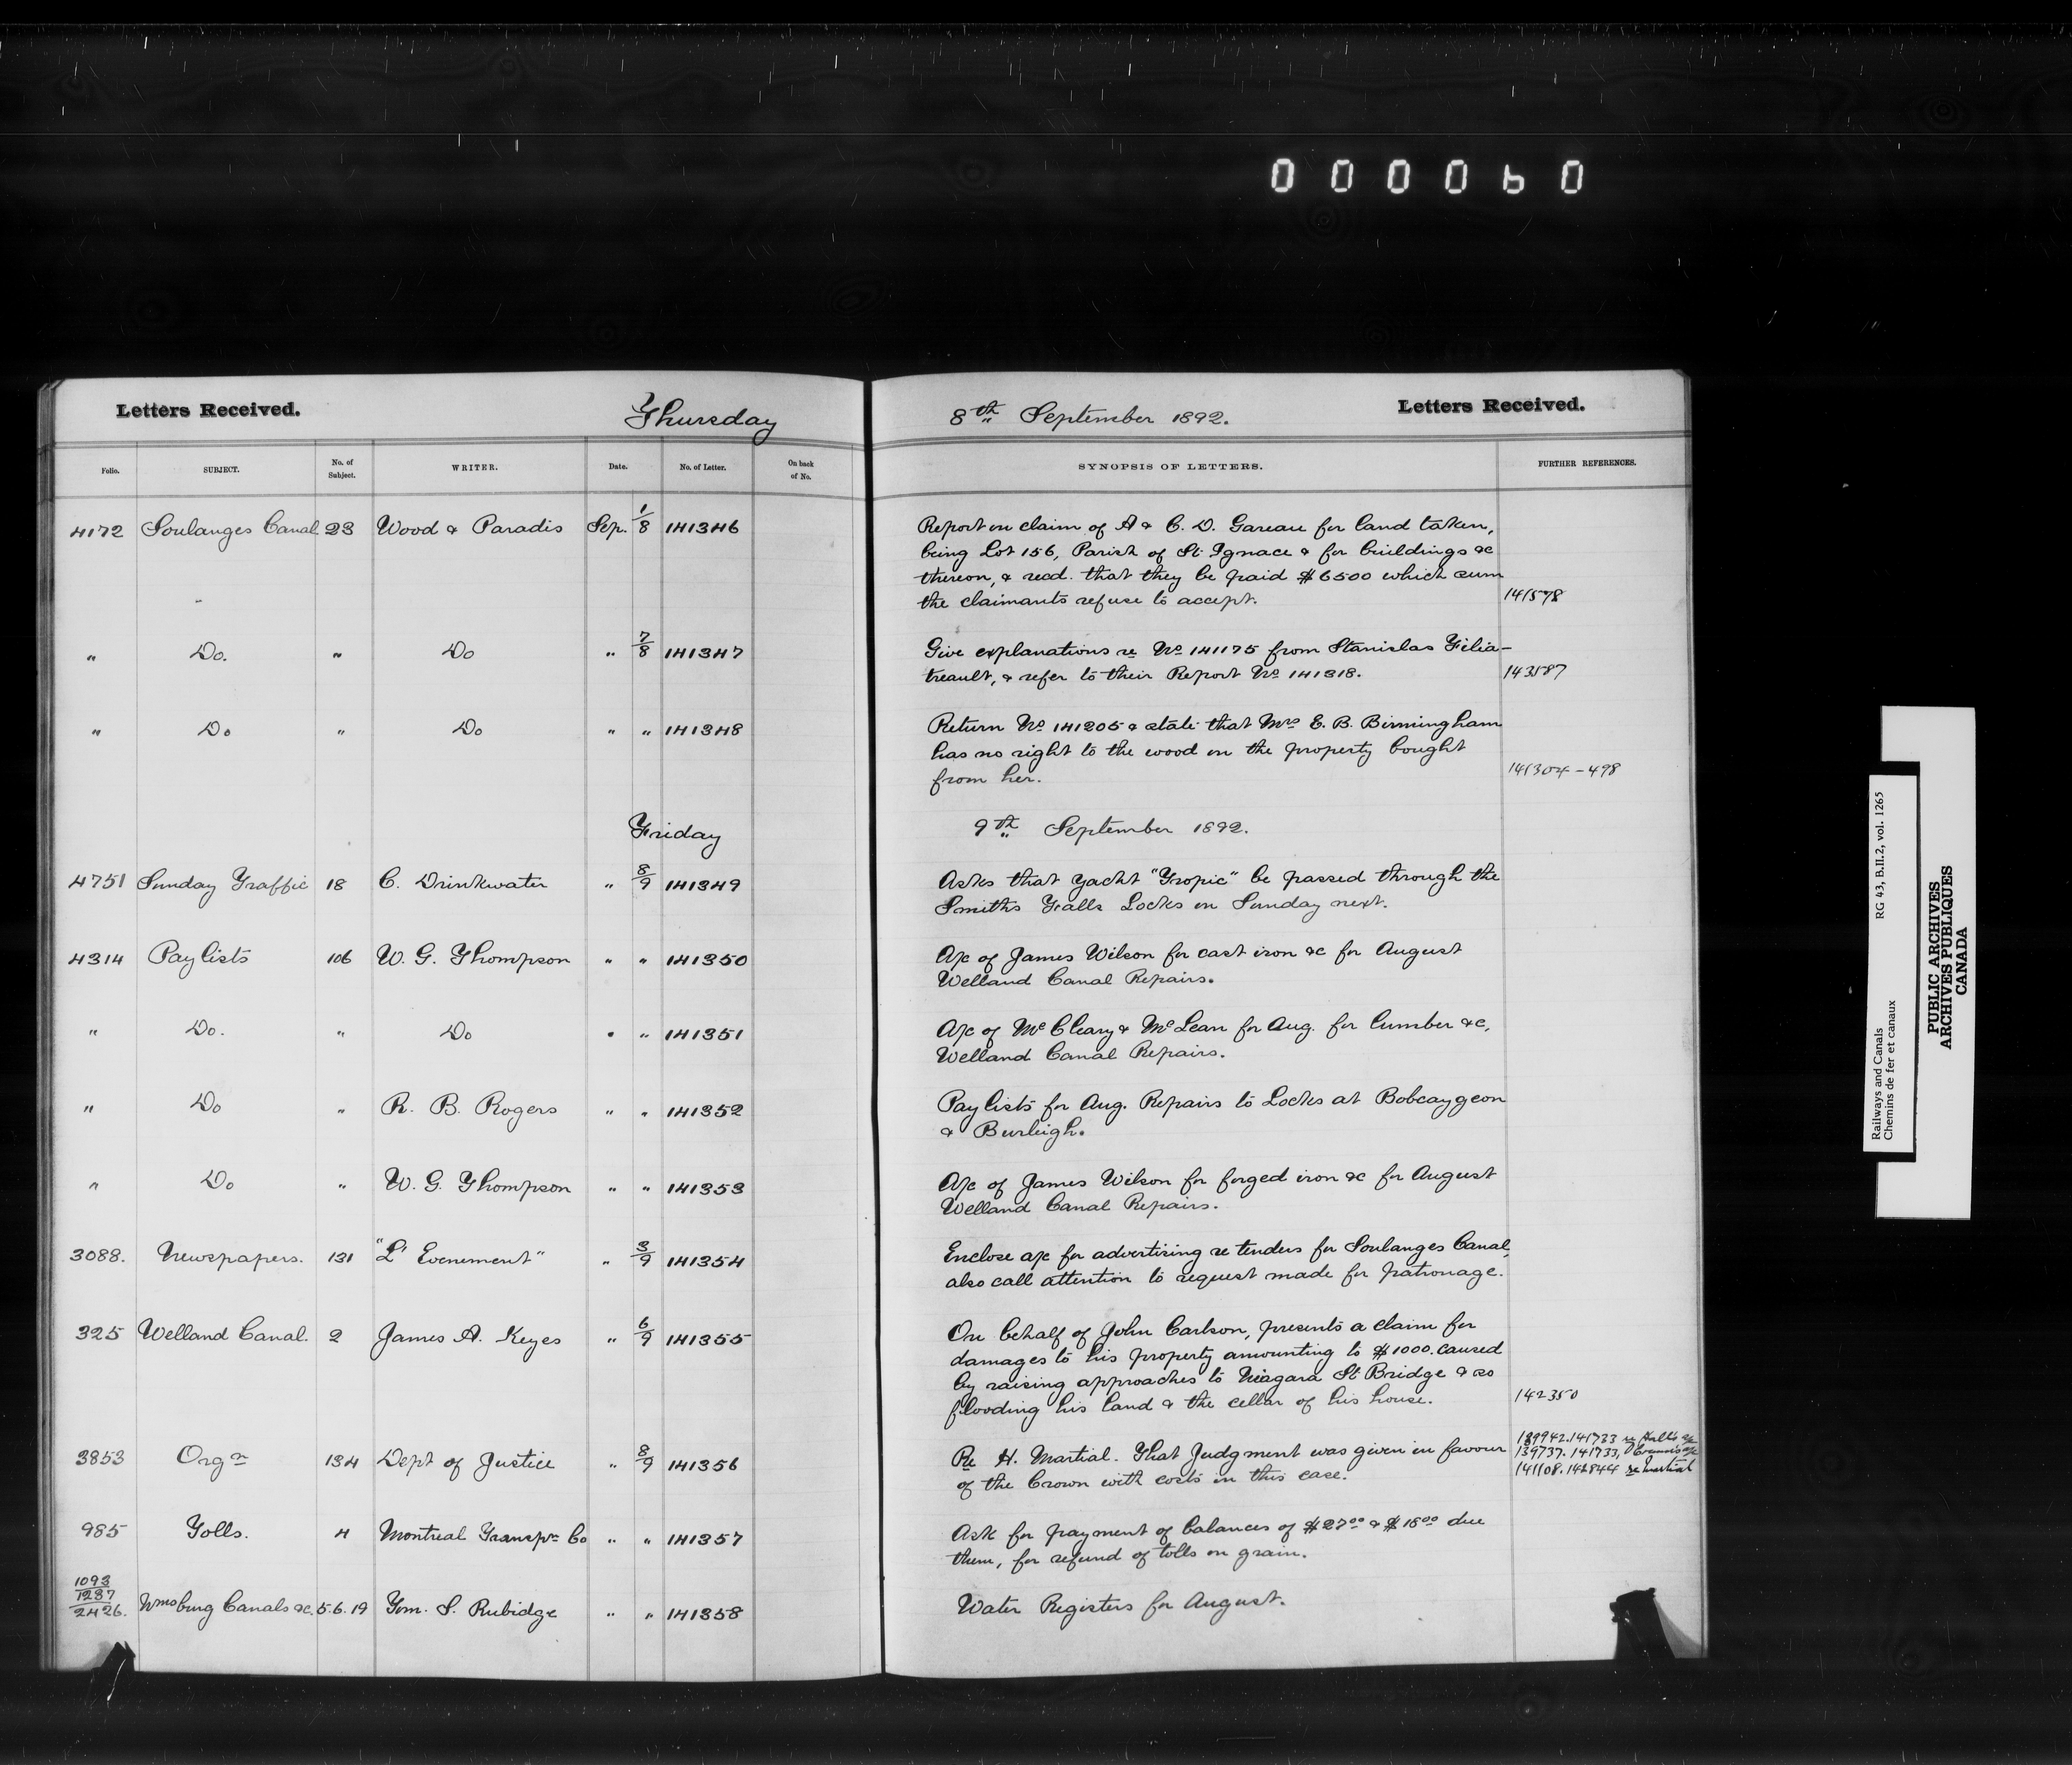 000060
Letters Received. Thursday 8th September 1892. Letters Received.
Folio. SUBJECT. No. of Subject. WRITER. Date. No. of Letter. On back of No. SYNOPSIS OF LETTERS. FURTHER REFERENCES.
4172 Soulanges Canal 23 Wood & Paradis Sep. 1/8 141346 Report on claim of A & C. D. Gareau for land taken,
being Lot 156, Parish of St Ignace & for buildings &c
thereon, & recd. that they be paid $6500 which sum
the claimants refuse to accept. 141578
" Do. " Do " 7/8 141347 Give explanations re No 141175 from Stanislas Filia-
treault, & refer to their Report No 141318. 143587
" Do " Do " " 141348 Return No 141205 & state that Mrs E. B. Birmingham
has no right to the wood on the property bought
from her. 141304-498
Friday 9th September 1892.
4751 Sunday Traffic 18 C. Drinkwater " 8/9 141349 Asks that yacht "Tropic" be passed through the
Smiths Falls Locks on Sunday next.
4314 Paylists 106 W. G. Thompson " " 141350 A/c of James Wilson for cast iron &c for August
Welland Canal Repairs.
" Do. " Do " " 141351 A/c of McCleary & McLean for Aug. for lumber &c,
Welland Canal Repairs.
" Do " R. B. Rogers " " 141352 Paylists for Aug. Repairs to Locks at Bobcaygeon
& Burleigh.
" Do " W. G. Thompson " " 141353 A/c of James Wilson for forged iron &c for August
Welland Canal Repairs.
3088. Newspapers. 131 "L'Evenement" " 3/9 141354 Enclose a/c for advertising re tenders for Soulanges Canal,
also call attention to request made for patronage.
325 Welland Canal. 2 James A. Keyes " 6/9 141355 On behalf of John Carlson, presents a claim for
damages to his property amounting to $1000. caused
by raising approaches to Niagara St Bridge & so
flooding his land & the cellar of his house. 142350
3853 Orgn 134 Dept of Justice " 8/9 141356 Re H. Martial. That Judgment was given in favour
of the Crown with costs in this case.
139942. 141733 re
139737. 141733,
141108. 142844 re Martial
985 Tolls. 4 Montreal Transpn Co " " 141357 Ask for payment of balances of $27 00 & $18 00 due
them, for refund of tolls on grain.
1093
1287
2426. Wmsburg Canals &c. 5.6.19 Tom. S. Rubidge " " 141358 Water Registers for August.
Railways and Canals RG 43, B.II.2, vol. 1265
Chemins de fer et canaux
PUBLIC ARCHIVES
ARCHIVES PUBLIQUES
CANADA